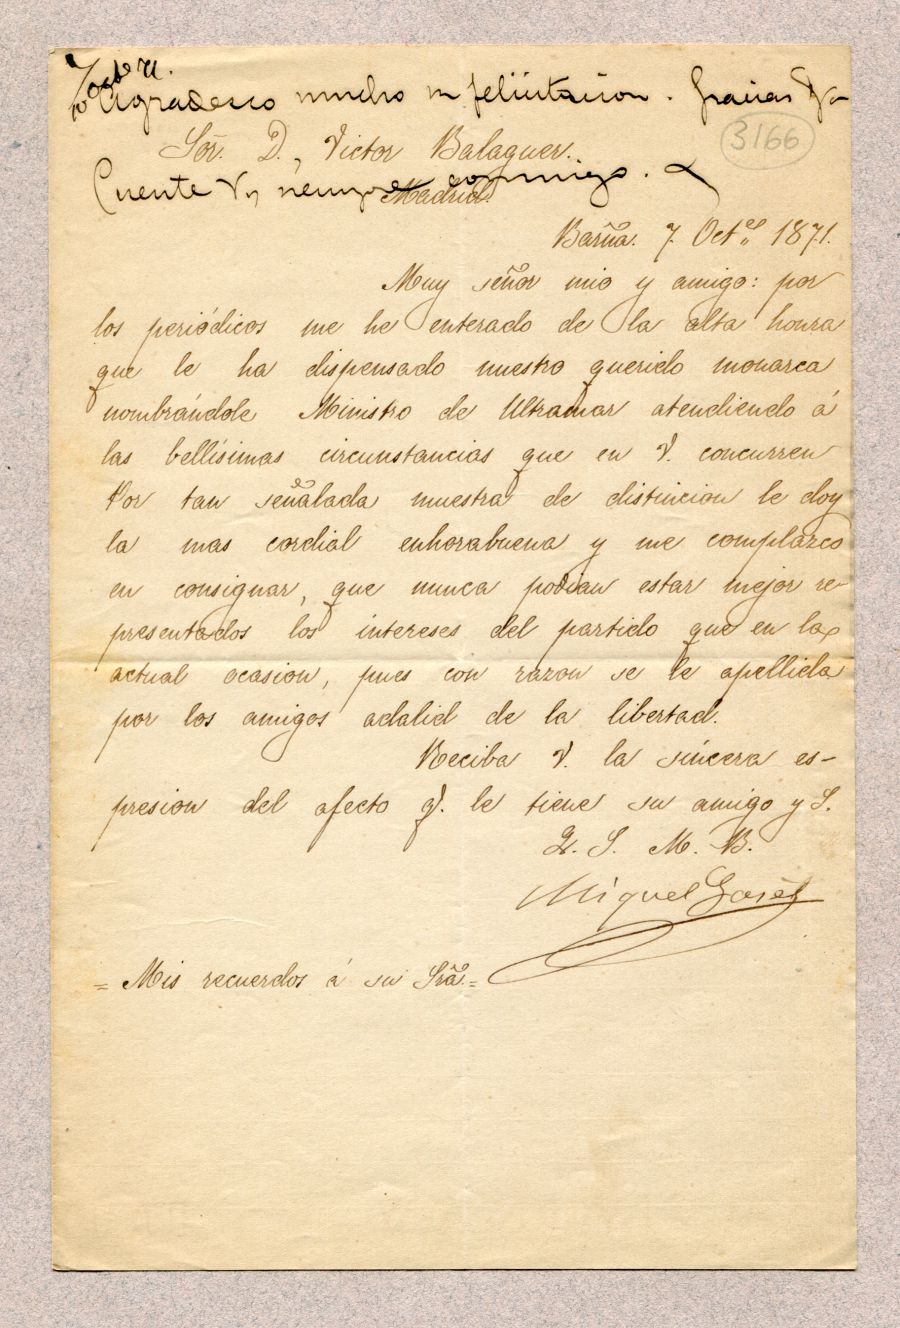 7 Octe 71.
Agradesco mucho su felicitacion. Gracias
3166
Sor. D. Victor Balaguer.
Cuente V, siempre conmigo.
Madrid.
Barña. 7. Octes 1871.
Muy señor mio y amigo: por
los periódicos me he enterado de la alta honra
que le ha dispensado nuestro querido monarca
nombrándole Ministro de Ultramar atendiendo á
las bellísimas circunstancias que en V. concurren
Por tan señalada muestra de distincion le doy
la mas cordial enhorabuena y me complazco
en consignar, que nunca podian estar mejor re-
presentados los intereses del partido que en la
actual ocasion, pues con razon se le apellida
por los amigos adalid de la libertad.
Reciba V. la sincera es-
presion del afecto q. le tiene su amigo y S.
Q. S. M. B.
Miguel
= Mis recuerdos á su Srã. =